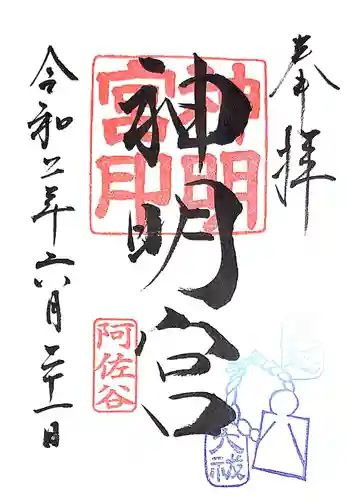 奉拝
神明宮
神明宮印
令和二年六月二十一日
阿佐谷
大祓